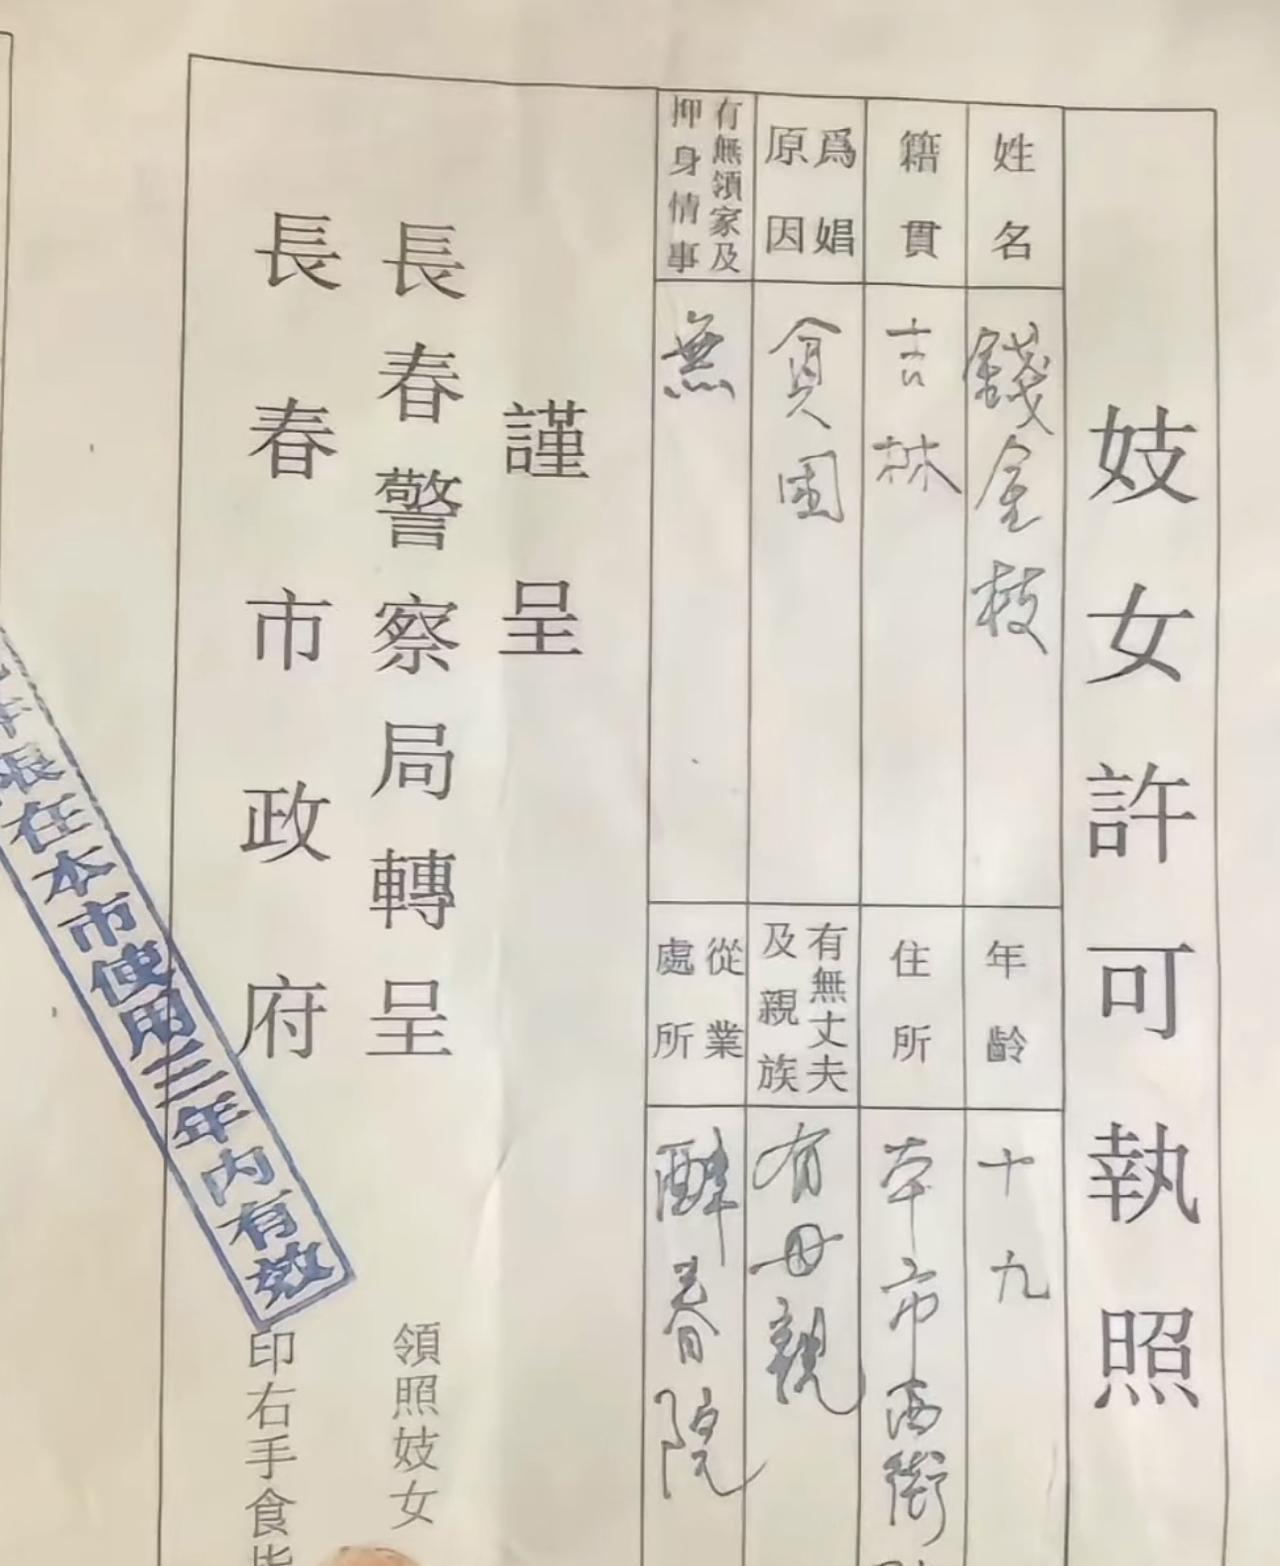 妓女許可執照
姓名
錢金枝
年齡
十九
籍貫
吉林
住所
本市西街
爲娼原因
貧困
有無丈夫及親族
有母親
有無領家及押身情事
無
從業處所
醉春院
謹呈
長春警察局轉呈
長春市政府
領照妓女
印右手食
在本市使用三年內有效